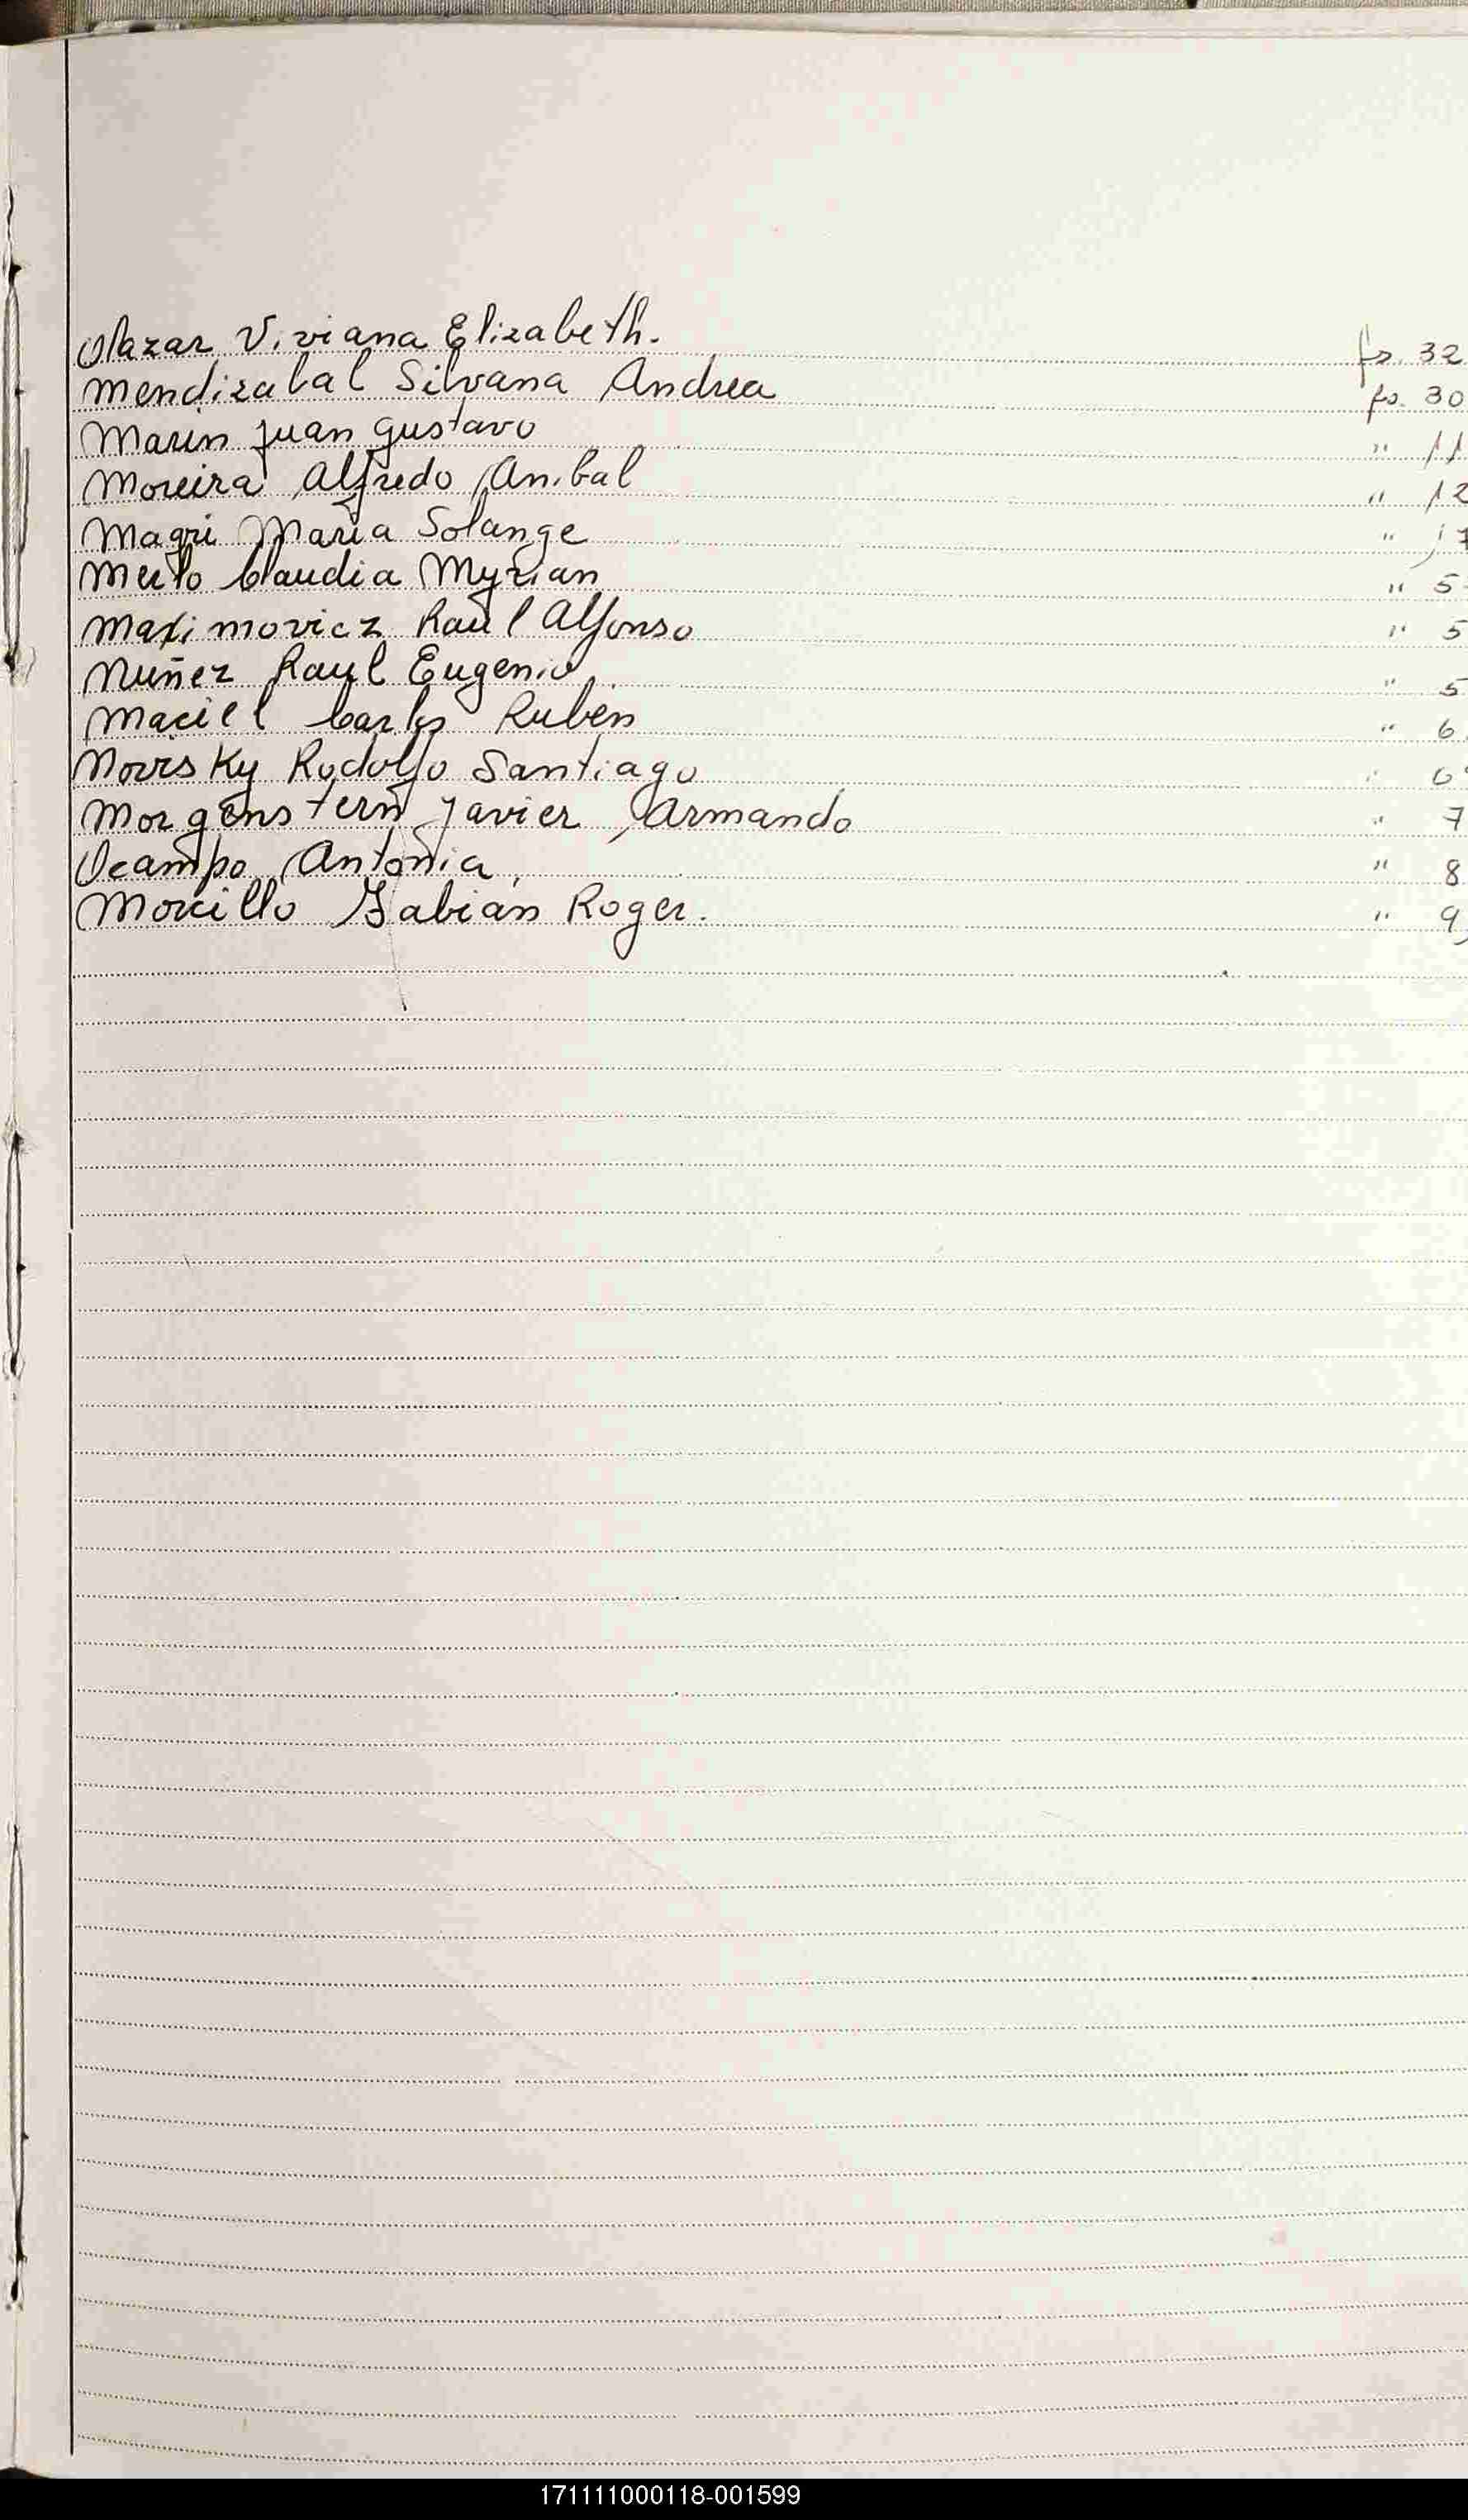 Olazar Viviana Elizabeth. fs. 32
Mendizabal Silvana Andrea fs. 30
Marin Juan Gustavo " 11
Moreira Alfredo Anibal " 12
Magri Maria Solange "
Merlo Claudia Myrian " 5
Maximovicz Raúl Alfonso " 5
Nuñez Raul Eugenio " 5
Maciel Carlos Rubén " 6
Rodolfo Santiago " 6
Morgenstern Javier Armando " 7
Ocampo Antonia, " 8
Morcillo Fabián Roger. " 9
171111000118-001599